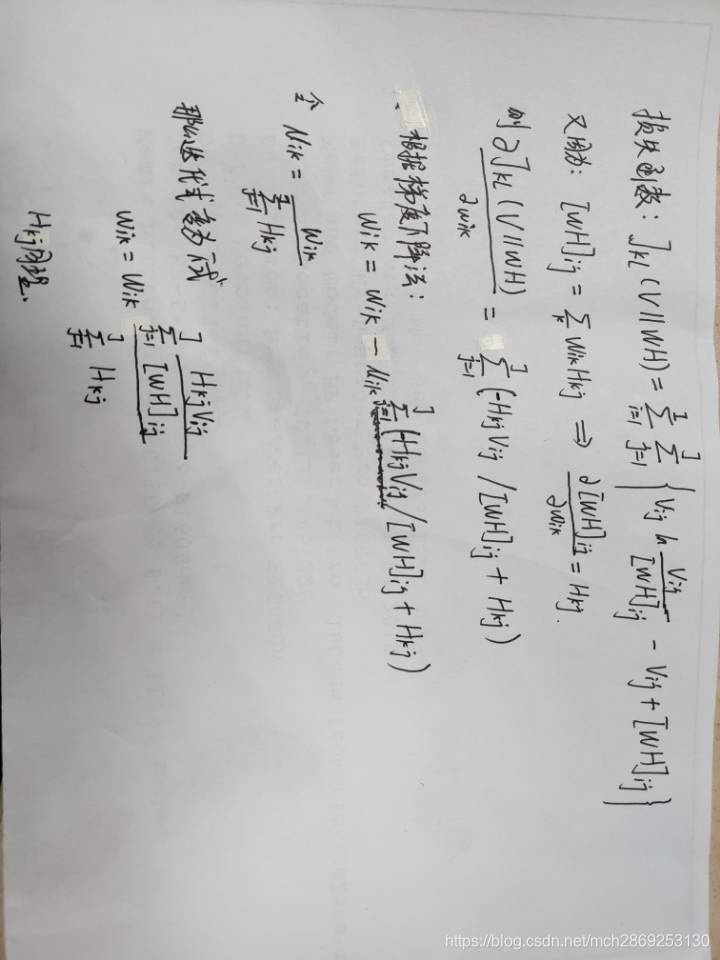 损失函数: J_KL (V||WH) = Σ_{i=1}^{I} Σ_{j=1}^{J} { V_ij ln V_ij / [WH]_ij - V_ij + [WH]_ij }
又因为: [WH]_ij = Σ_k W_ik H_kj ⇒ ∂[WH]_ij / ∂W_ik = H_kj.
则 ∂J_KL (V||WH) / ∂W_ik = Σ_{j=1}^{J} (-H_kj V_ij / [WH]_ij + H_kj)
根据梯度下降法:
W_ik = W_ik - N_ik Σ_{j=1}^{J} (-H_kj V_ij / [WH]_ij + H_kj)
令 N_ik = W_ik / Σ_{j=1}^{J} H_kj
那么迭代式变为下式
W_ik = W_ik Σ_{j=1}^{J} H_kj V_ij / [WH]_ij / Σ_{j=1}^{J} H_kj
H_kj同理.
https://blog.csdn.net/mch2869253130